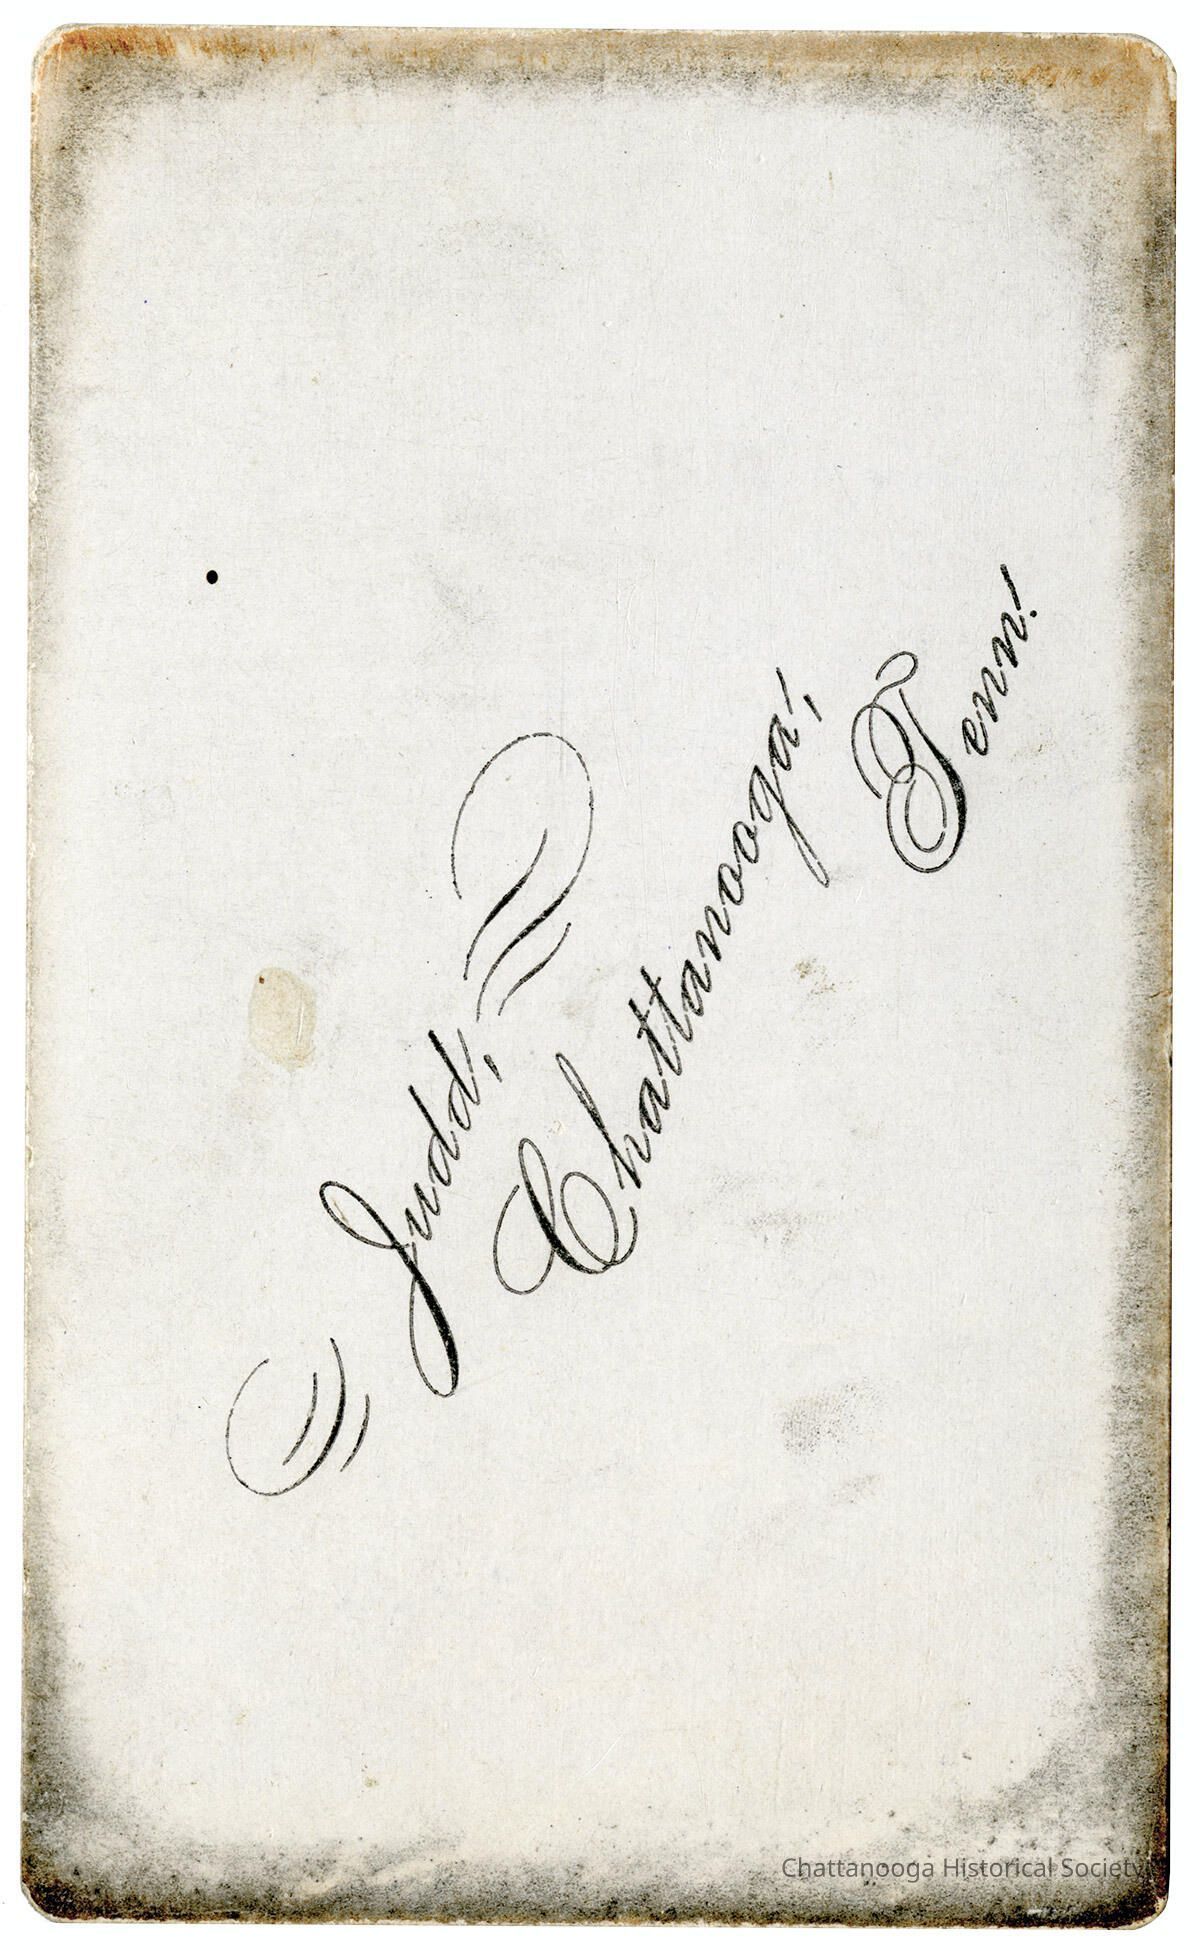 Judd,
Chattanooga,
Tenn.
Chattanooga Historical Society